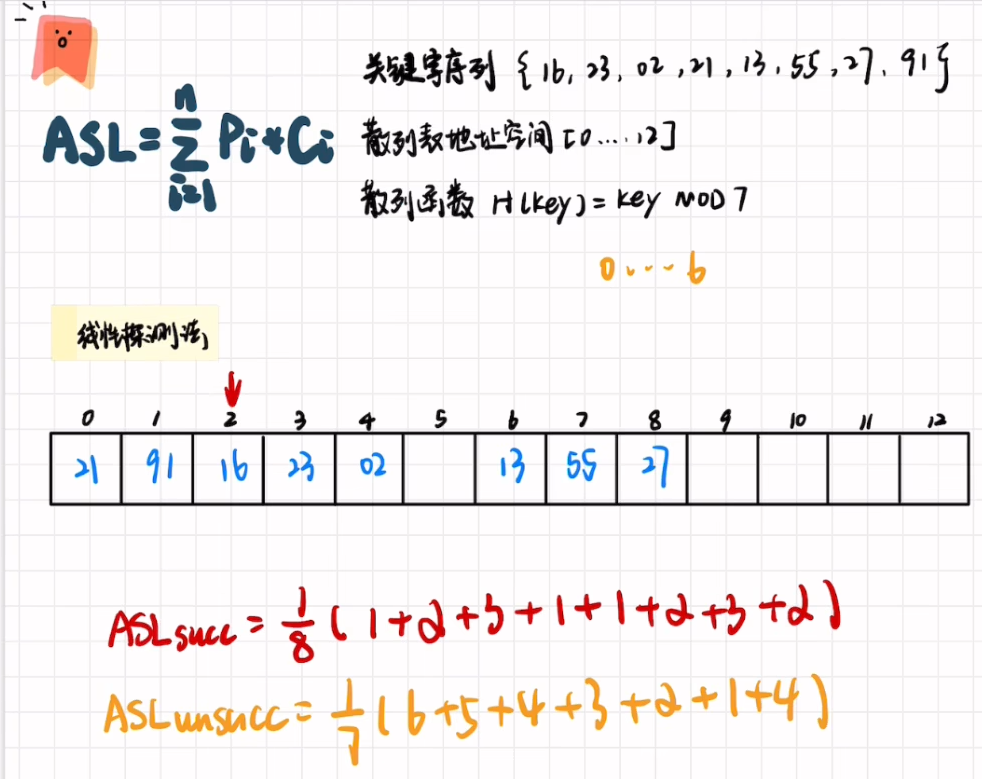 关键字序列 {16, 23, 02, 21, 13, 55, 27, 91}
ASL = n Σ i=1 Pi * Ci
散列表地址空间 [0......12]
散列函数 H(key) = key MOD 7
0 ···· 6
线性探测法
0 1 2 3 4 5 6 7 8 9 10 11 12
21 91 16 23 02 13 55 27
ASLsucc = 1/8 (1+2+3+1+1+2+3+2)
ASLunsucc = 1/7 (6+5+4+3+2+1+4)